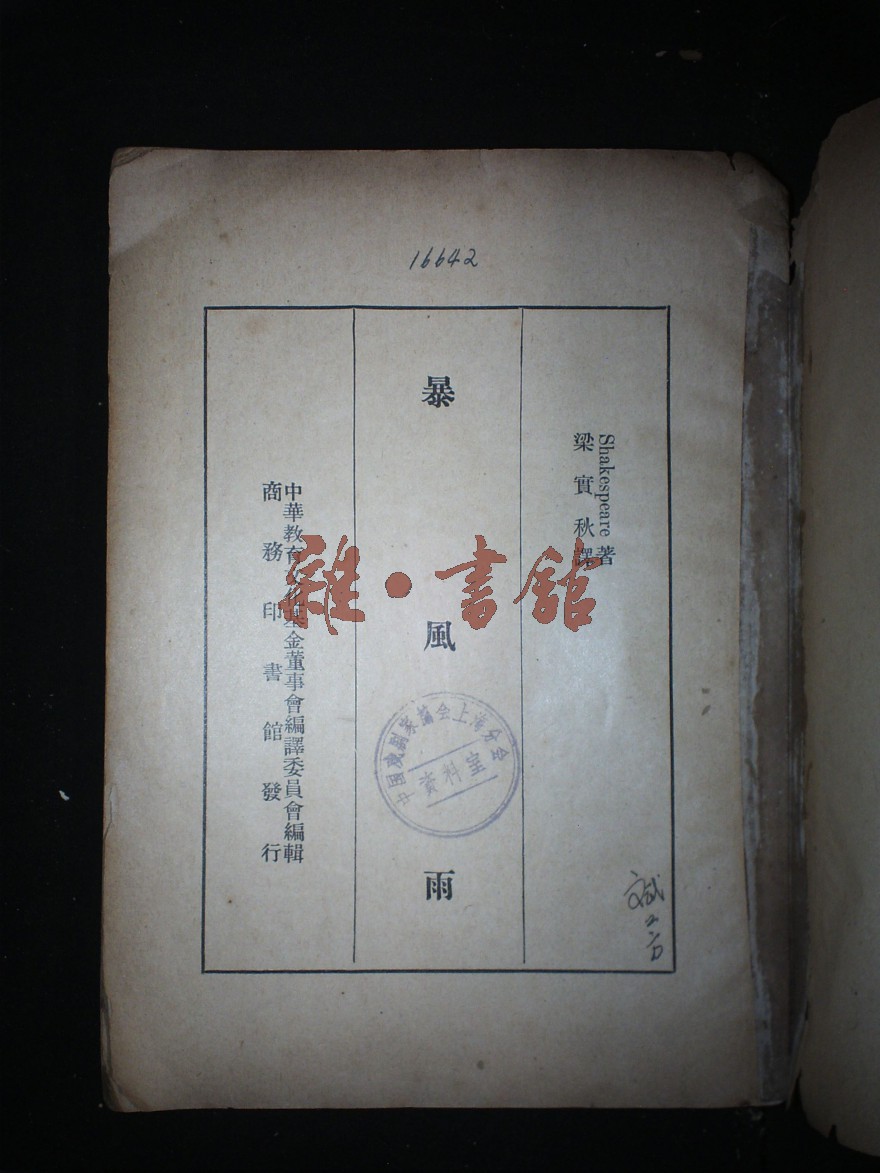 16642
Shakespeare著
梁實秋譯
暴風雨
中華教育文化基金董事會編譯委員會編輯
商務印書館發行
中国戏剧家协会上海分会
资料室
雜·書館